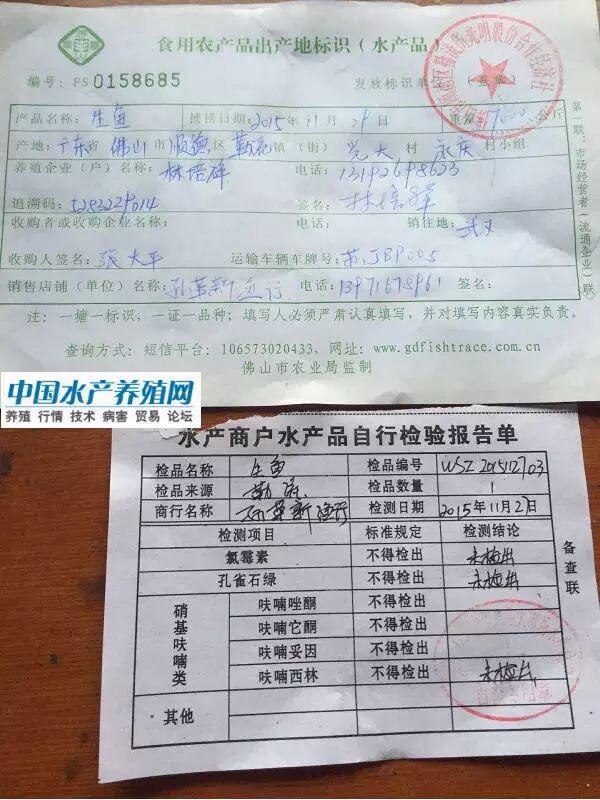 食用农产品出产地标识（水产品）
编号：FS0158685 发放标识单位（盖章）
产品名称：生鱼 捕捞日期：2015年11月29日 重量：7000 公斤
产地：广东省佛山市顺德区勒流（街）光大村永庆村小组
养殖企业（户）名称：林培辉 电话：13192698623
追溯码：5283229014 签名：林培辉
收购者或收购企业名称： 电话： 销往地：武汉
收购人签名：张大平 运输车辆车牌号：
销售店铺（单位）名称：孙革新鱼行 电话：13971678961 签名：
注：一塘一标识，一证一品种；填写人必须严肃认真填写，并对填写内容真实负责。
查询方式：短信平台：106573020433，网址：www.gdfishtrace.com.cn
佛山市农业局监制
第一联：市场经营者（流通企业）联
中国水产养殖网
养殖 行情 技术 病害 贸易 论坛
水产商户水产品自行检验报告单
检品名称 生鱼 检品编号 WSZ2015112703
检品来源 勒流 检品数量 1
商行名称 孙革新渔行 检测日期 2015年11月27日
检测项目 标准规定 检测结论
氯霉素 不得检出 未检出
孔雀石绿 不得检出 未检出
硝基呋喃类 呋喃唑酮 不得检出
呋喃它酮 不得检出
呋喃妥因 不得检出
呋喃西林 不得检出 未检出
其他
备查联